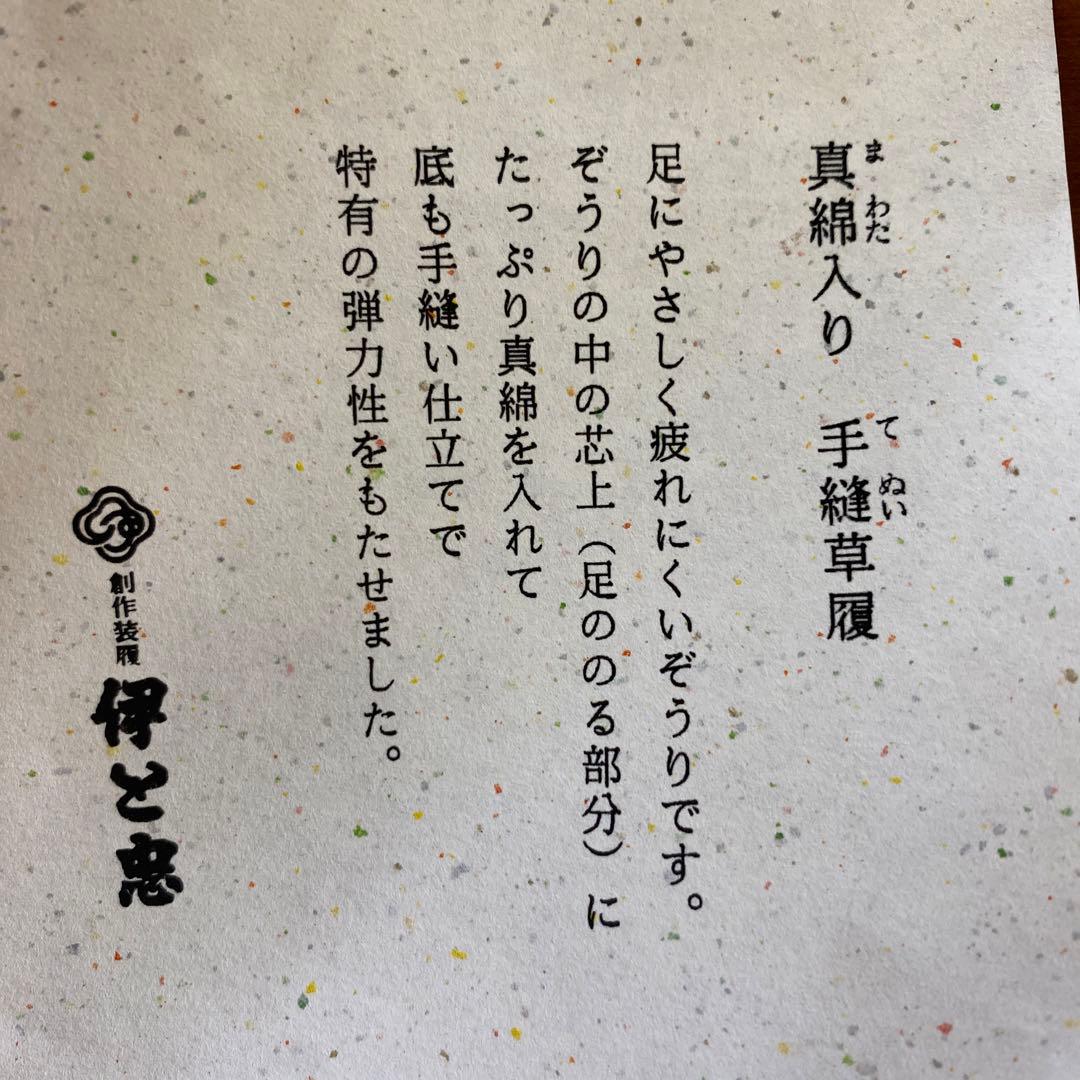 真綿入り　手縫草履
まわた
てぬい
足にやさしく疲れにくいぞうりです。
ぞうりの中の芯上（足ののる部分）に
たっぷり真綿を入れて
底も手縫い仕立てで
特有の弾力性をもたせました。
創作装履
伊と忠